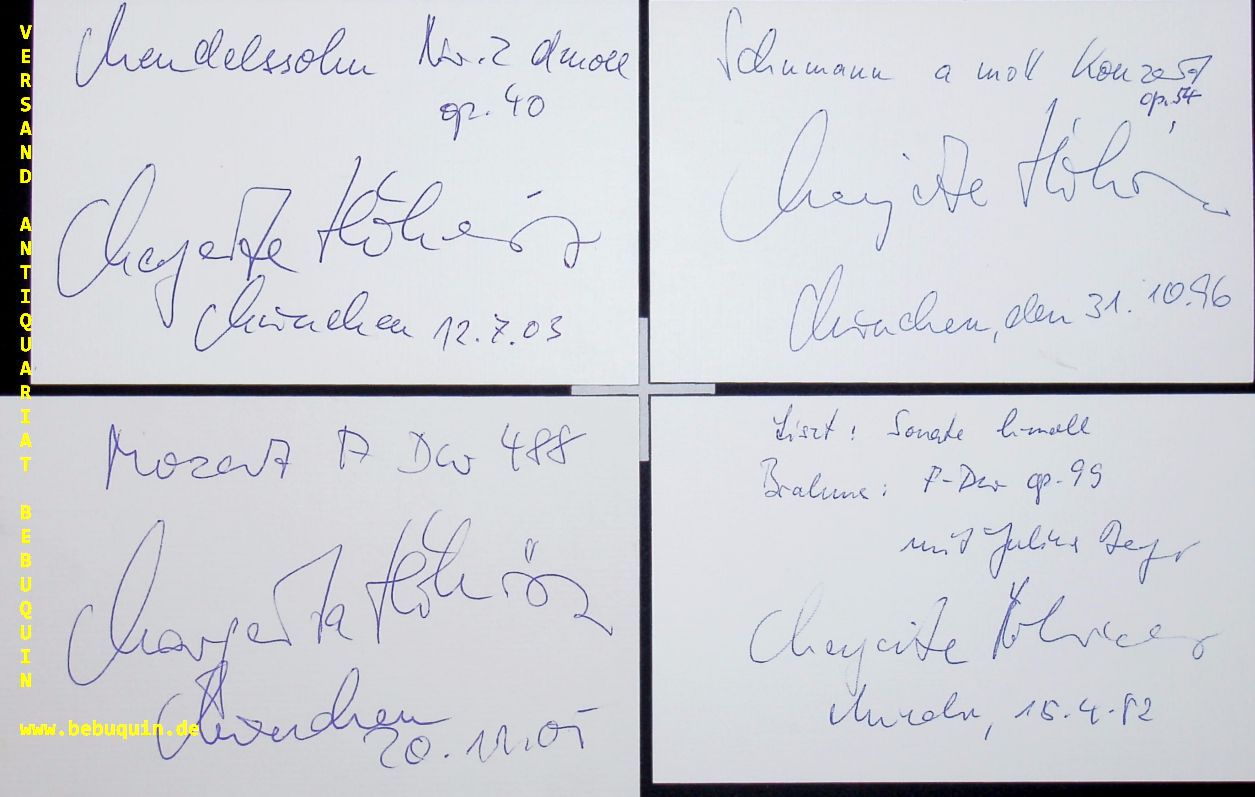 VERSAND ANTIQUARIAT BEBUQUIN
www.bebuquin.de
Mendelssohn Nr. 2 dmoll
op. 40
Margarita Höhenrieder
München 12.7.03
Schumann a moll Konzert
op. 54
Margarita
München, den 31.10.96
Mozart A Dur 488
Margarita
München
20.11.05
Liszt: Sonate h-moll
Brahms: F-Dur op. 99
mit Julius Berger
Margarita Höhenrieder
München, 15.4.82